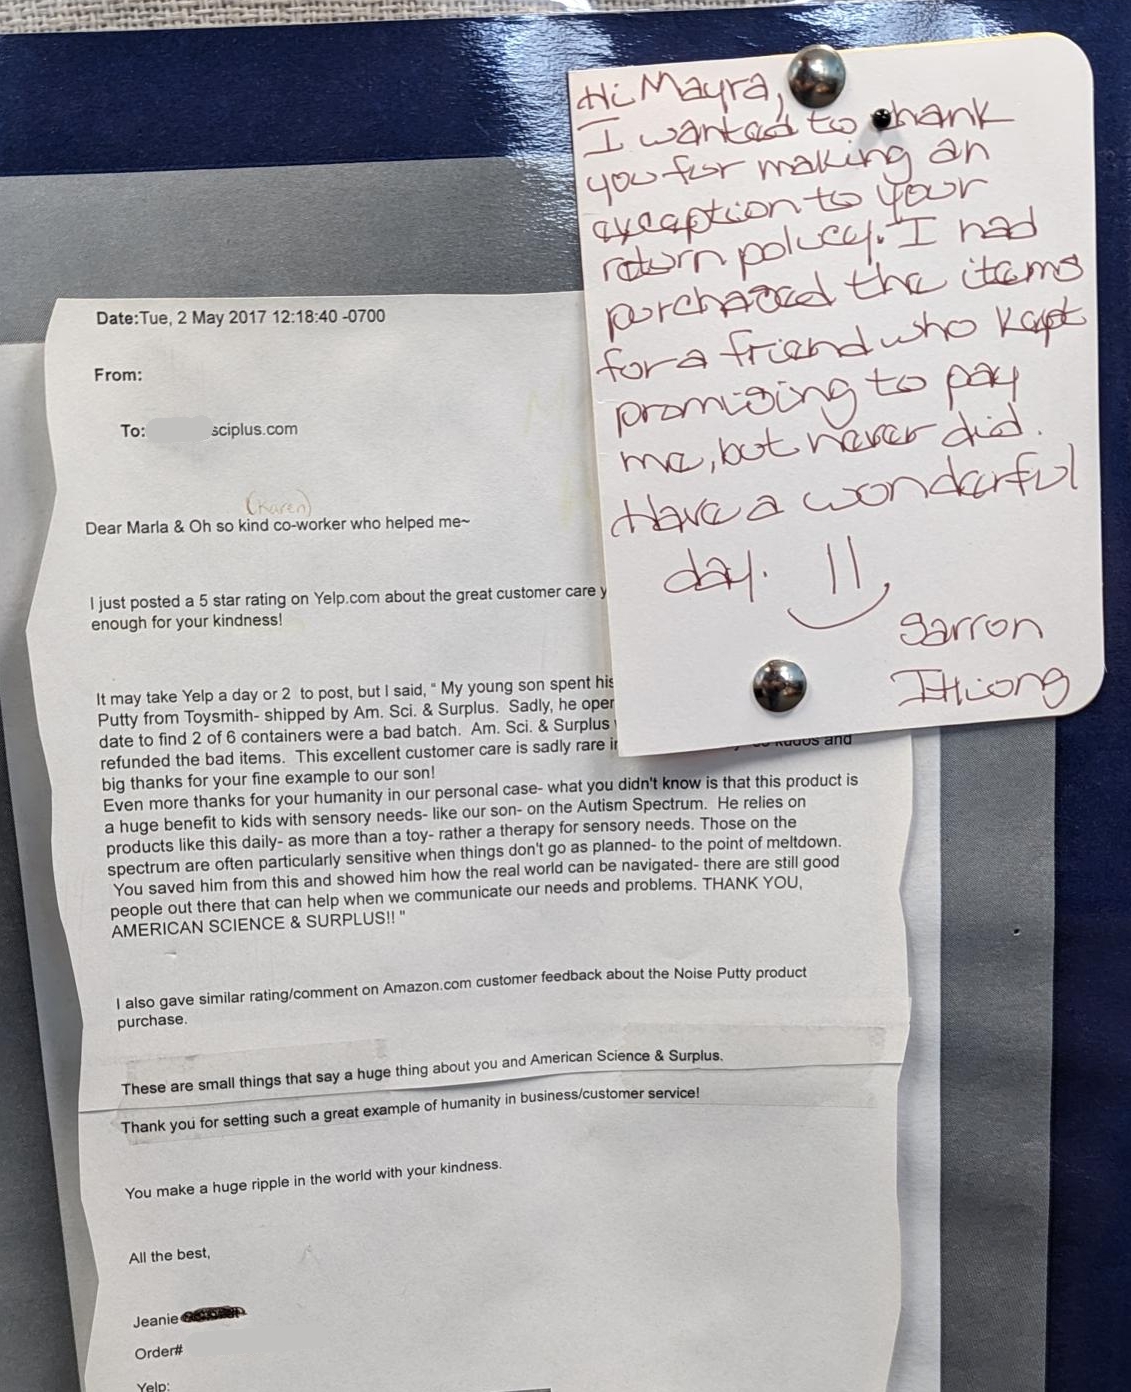 Hi Mayra,
I wanted to thank
you for making an
exception to your
return policy. I had
purchased the items
for a friend who kept
promising to pay
me, but never did.
Have a wonderful
day.
Sarron
Date:Tue, 2 May 2017 12:18:40 -0700
From:
To: sciplus.com
(Karen)
Dear Marla & Oh so kind co-worker who helped me~
I just posted a 5 star rating on Yelp.com about the great customer care y
enough for your kindness!
It may take Yelp a day or 2 to post, but I said, " My young son spent his
Putty from Toysmith- shipped by Am. Sci. & Surplus. Sadly, he oper
date to find 2 of 6 containers were a bad batch. Am. Sci. & Surplus
refunded the bad items. This excellent customer care is sadly rare in kudos and
big thanks for your fine example to our son!
Even more thanks for your humanity in our personal case- what you didn't know is that this product is
a huge benefit to kids with sensory needs- like our son- on the Autism Spectrum. He relies on
products like this daily- as more than a toy- rather a therapy for sensory needs. Those on the
spectrum are often particularly sensitive when things don't go as planned- to the point of meltdown.
You saved him from this and showed him how the real world can be navigated- there are still good
people out there that can help when we communicate our needs and problems. THANK YOU,
AMERICAN SCIENCE & SURPLUS!! "
I also gave similar rating/comment on Amazon.com customer feedback about the Noise Putty product
purchase.
These are small things that say a huge thing about you and American Science & Surplus.
Thank you for setting such a great example of humanity in business/customer service!
You make a huge ripple in the world with your kindness.
All the best,
Jeanie
Order#
Yelp: